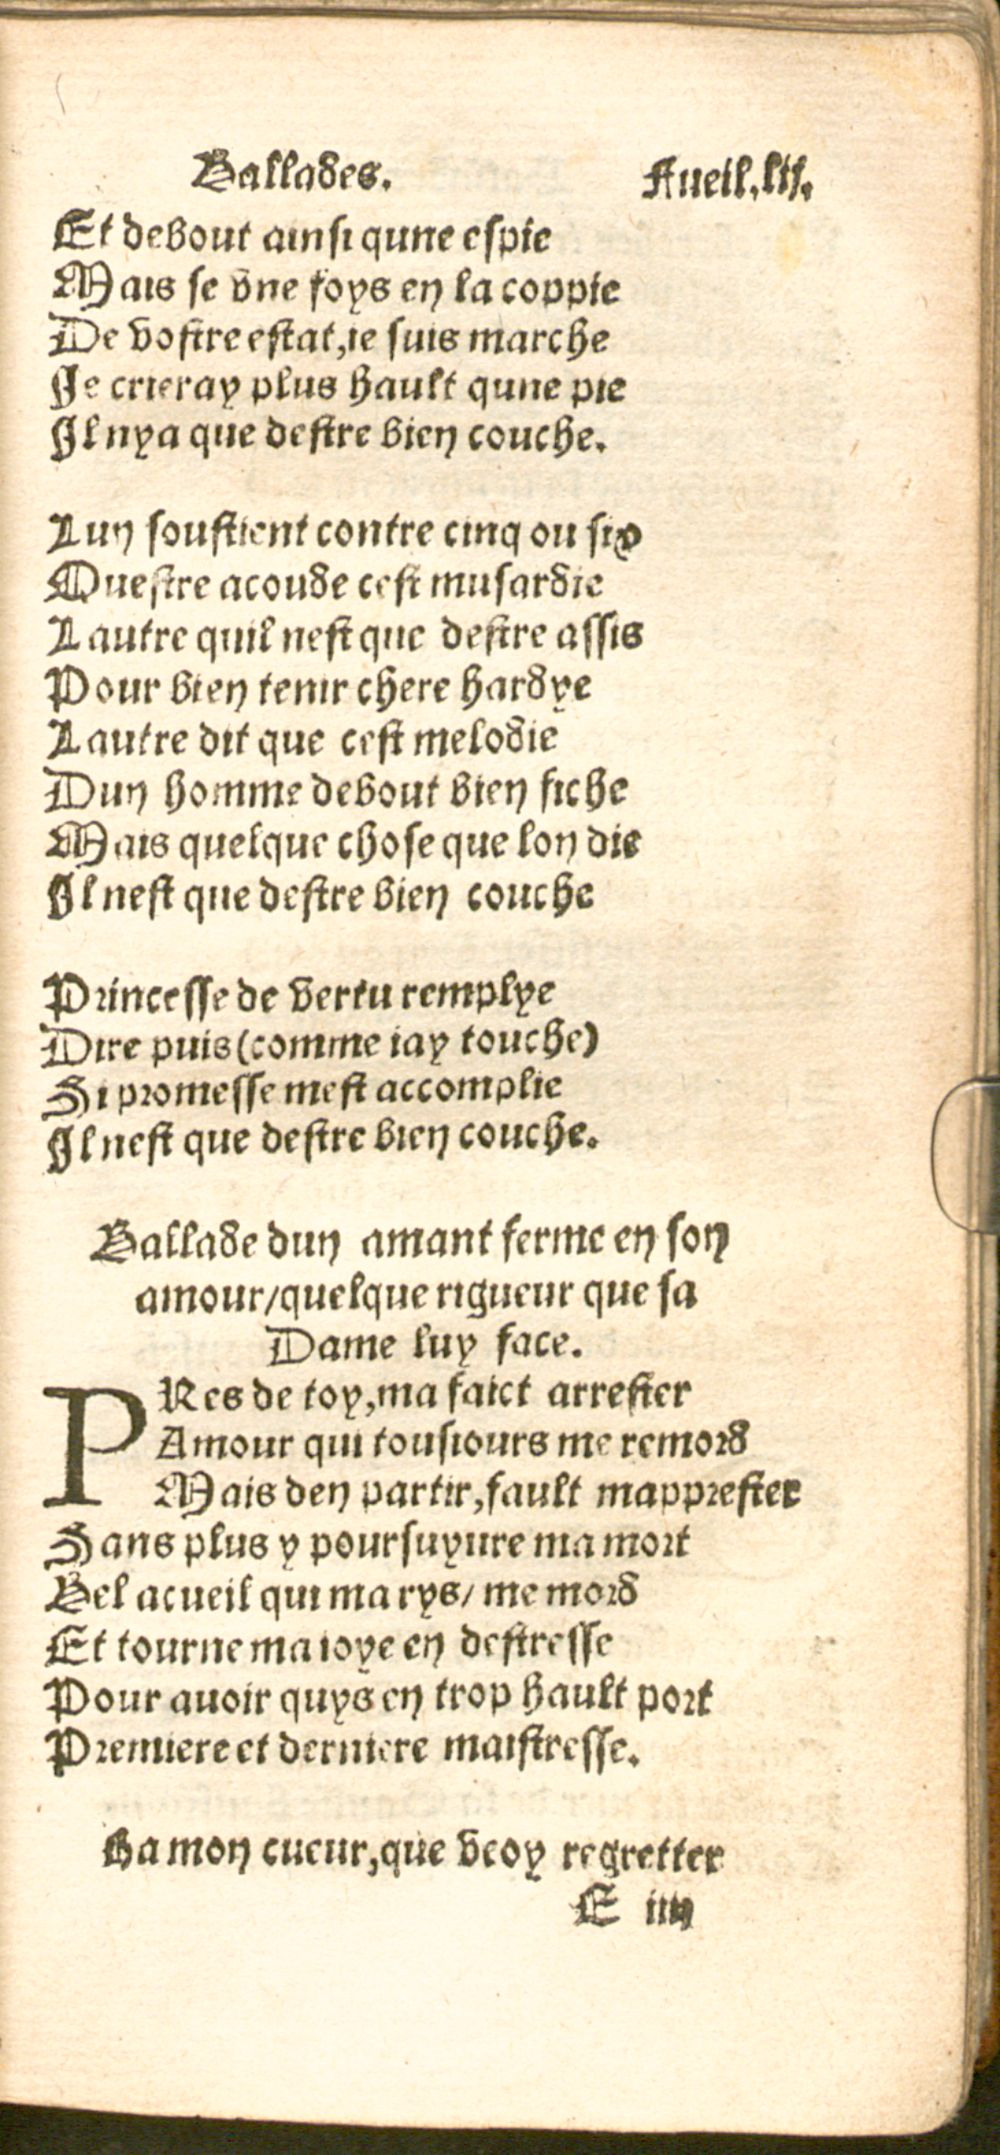 Ballades. Fueil.lij.
Et debout ainsi qune espie
Mais se vne foys en la coppie
De vostre estat,ie suis marche
Je crieray plus hault qune pie
Il nya que destre bien couche.
Lun soustient contre cinq ou six
Questre acoude cest musardie
Lautre quil nest que destre assis
Pour bien tenir chere hardye
Lautre dit que cest melodie
Dun homme debout bien fiche
Mais quelque chose que lon die
Il nest que destre bien couche
Princesse de vertu remplye
Dire puis(comme iay touche)
Si promesse mest accomplie
Il nest que destre bien couche.
Ballade dun amant ferme en son
amour/quelque rigueur que sa
Dame luy face.
PRes de toy,ma faict arrester
Amour qui tousiours me remord
Mais den partir,fault mapprester
Sans plus y poursuyure ma mort
Bel acueil qui ma rys/ me mord
Et tourne ma ioye en destresse
Pour auoir quys en trop hault port
Premiere et derniere maistresse.
Ha mon cueur,que veoy regretter
E iiij